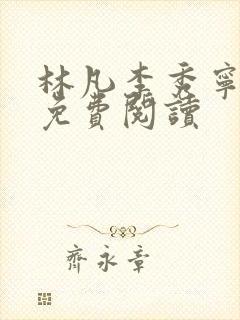 林凡李秀寧
免費閱讀
齊永章